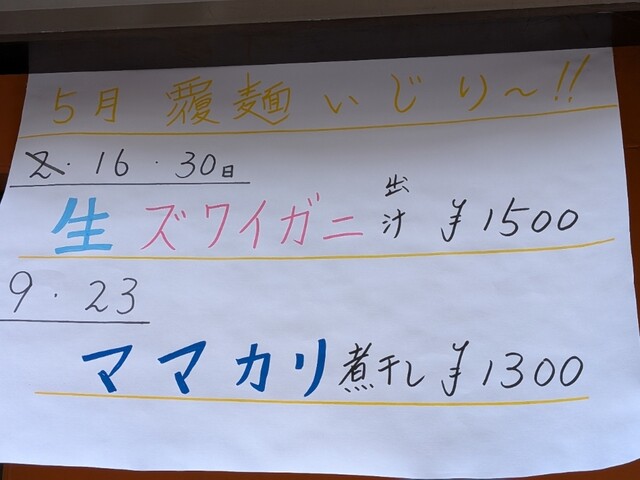 5月 覆麺 いじり〜!!
2・16・30日
生ズワイガニ出汁 ¥1500
9・23
ママカリ煮干し ¥1300